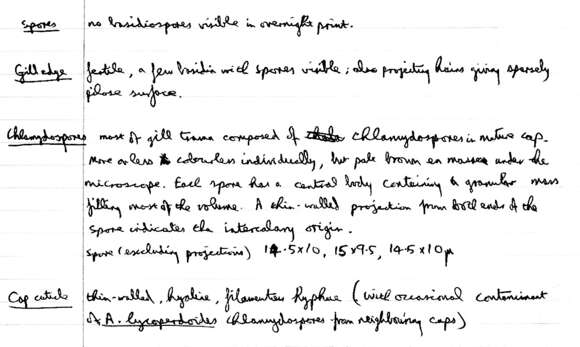 Spores no basidiospores visible in overnight print.
Gill edge fertile, a few basidia with spores visible; also projecting hairs giving sparsely
pilose surface.
Chlamydospores most of gill trama composed of chlamydospores in mature cap.
More or less colourless individually, but pale brown en masse under the
microscope. Each spore has a central body containing a granular mass
filling most of the volume. A thin-walled projection from both ends of the
spore indicates the intercalary origin.
Spore (excluding projections) 14.5x10, 15x9.5, 14.5x10µ
Cap cuticle thin-walled, hyaline, filamentous hyphae (with occasional contaminant
of A. lycoperdoides chlamydospores from neighbouring caps)